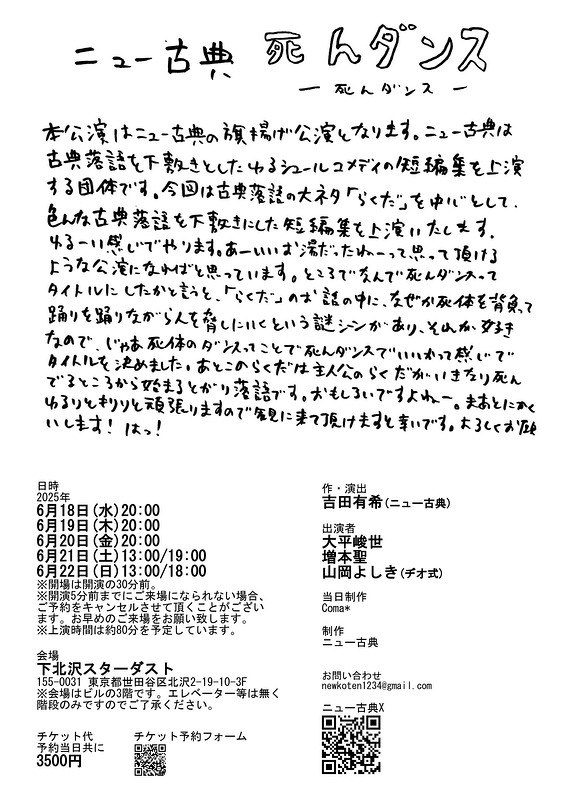 ニュー古典 死んダンス
ー 死んダンス ー
本公演はニュー古典の旗揚げ公演となります。ニュー古典は
古典落語を下敷きとしたゆるシュールコメディの短編集を上演
する団体です。今回は古典落語の大ネタ「らくだ」を中心として、
色んな古典落語を下敷きにした短編集を上演いたします。
ゆるーい感じでやります。あーいいお湯だったねーって思って頂ける
ような公演になればと思っています。ところでなんで死んダンスって
タイトルにしたかと言うと、「らくだ」のお話の中に、なぜか死体を背負って
踊りを踊りながら人を脅しにいくという謎シーンがあり、それが好き
なので、じゃあ死体のダンスってことで死んダンスでいいかって感じで
タイトルを決めました。あとこのらくだは主人公のらくだがいきなり死ん
でるところから始まるとがり落語です。おもしろいですよねー。まあとにかく
ゆるりときりりと頑張りますので観に来て頂けますと幸いです。よろしくお願
いします! はっ!
日時
2025年
6月18日(水)20:00
6月19日(木)20:00
6月20日(金)20:00
6月21日(土)13:00/19:00
6月22日(日)13:00/18:00
※開場は開演の30分前。
※開演5分前までにご来場になられない場合、
ご予約をキャンセルさせて頂くことがござい
ます。お早めのご来場をお願い致します。
※上演時間は約80分を予定しています。
会場
下北沢スターダスト
155-0031 東京都世田谷区北沢2-19-10-3F
※会場はビルの3階です。エレベーター等は無く
階段のみですのでご了承ください。
チケット代
予約当日共に
3500円
チケット予約フォーム
作・演出
吉田有希(ニュー古典)
出演者
大平峻世
増本聖
山岡よしき(ヂオ式)
当日制作
Coma*
制作
ニュー古典
お問い合わせ
newkoten1234@gmail.com
ニュー古典X